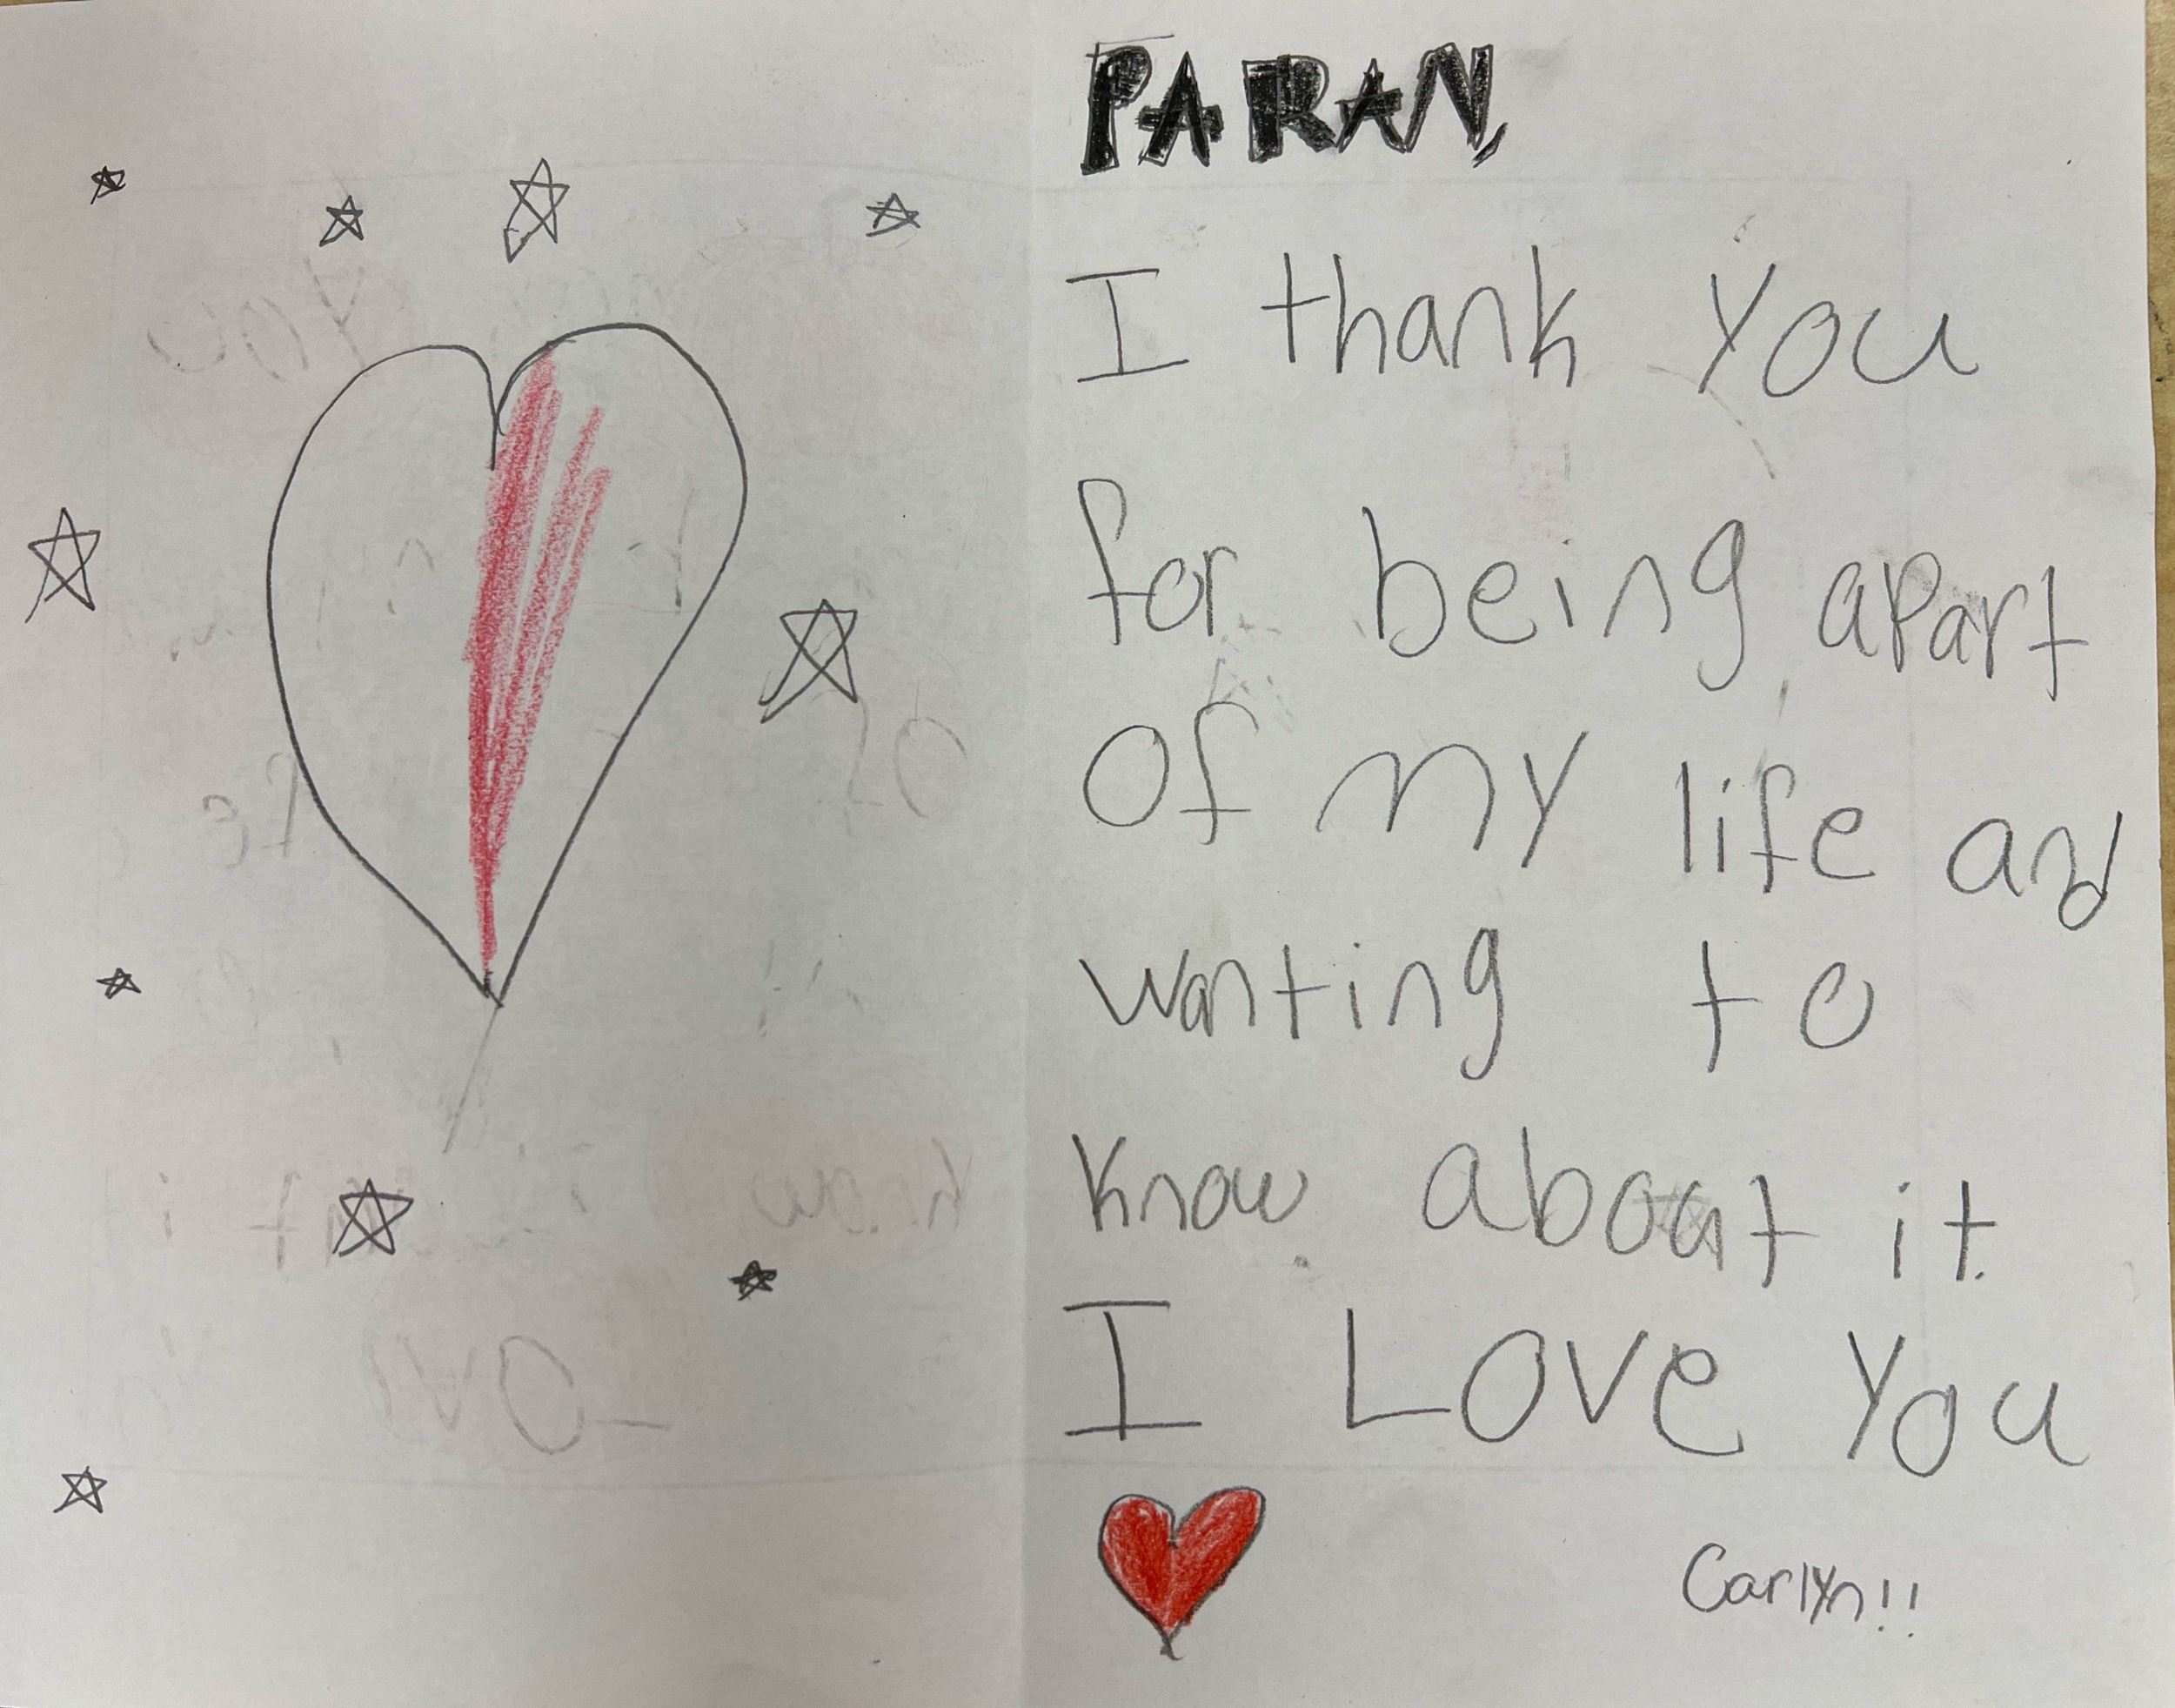 PARAN,
I thank you
for being apart
of my life and
wanting to
know about it.
I Love you
Carlyn!!